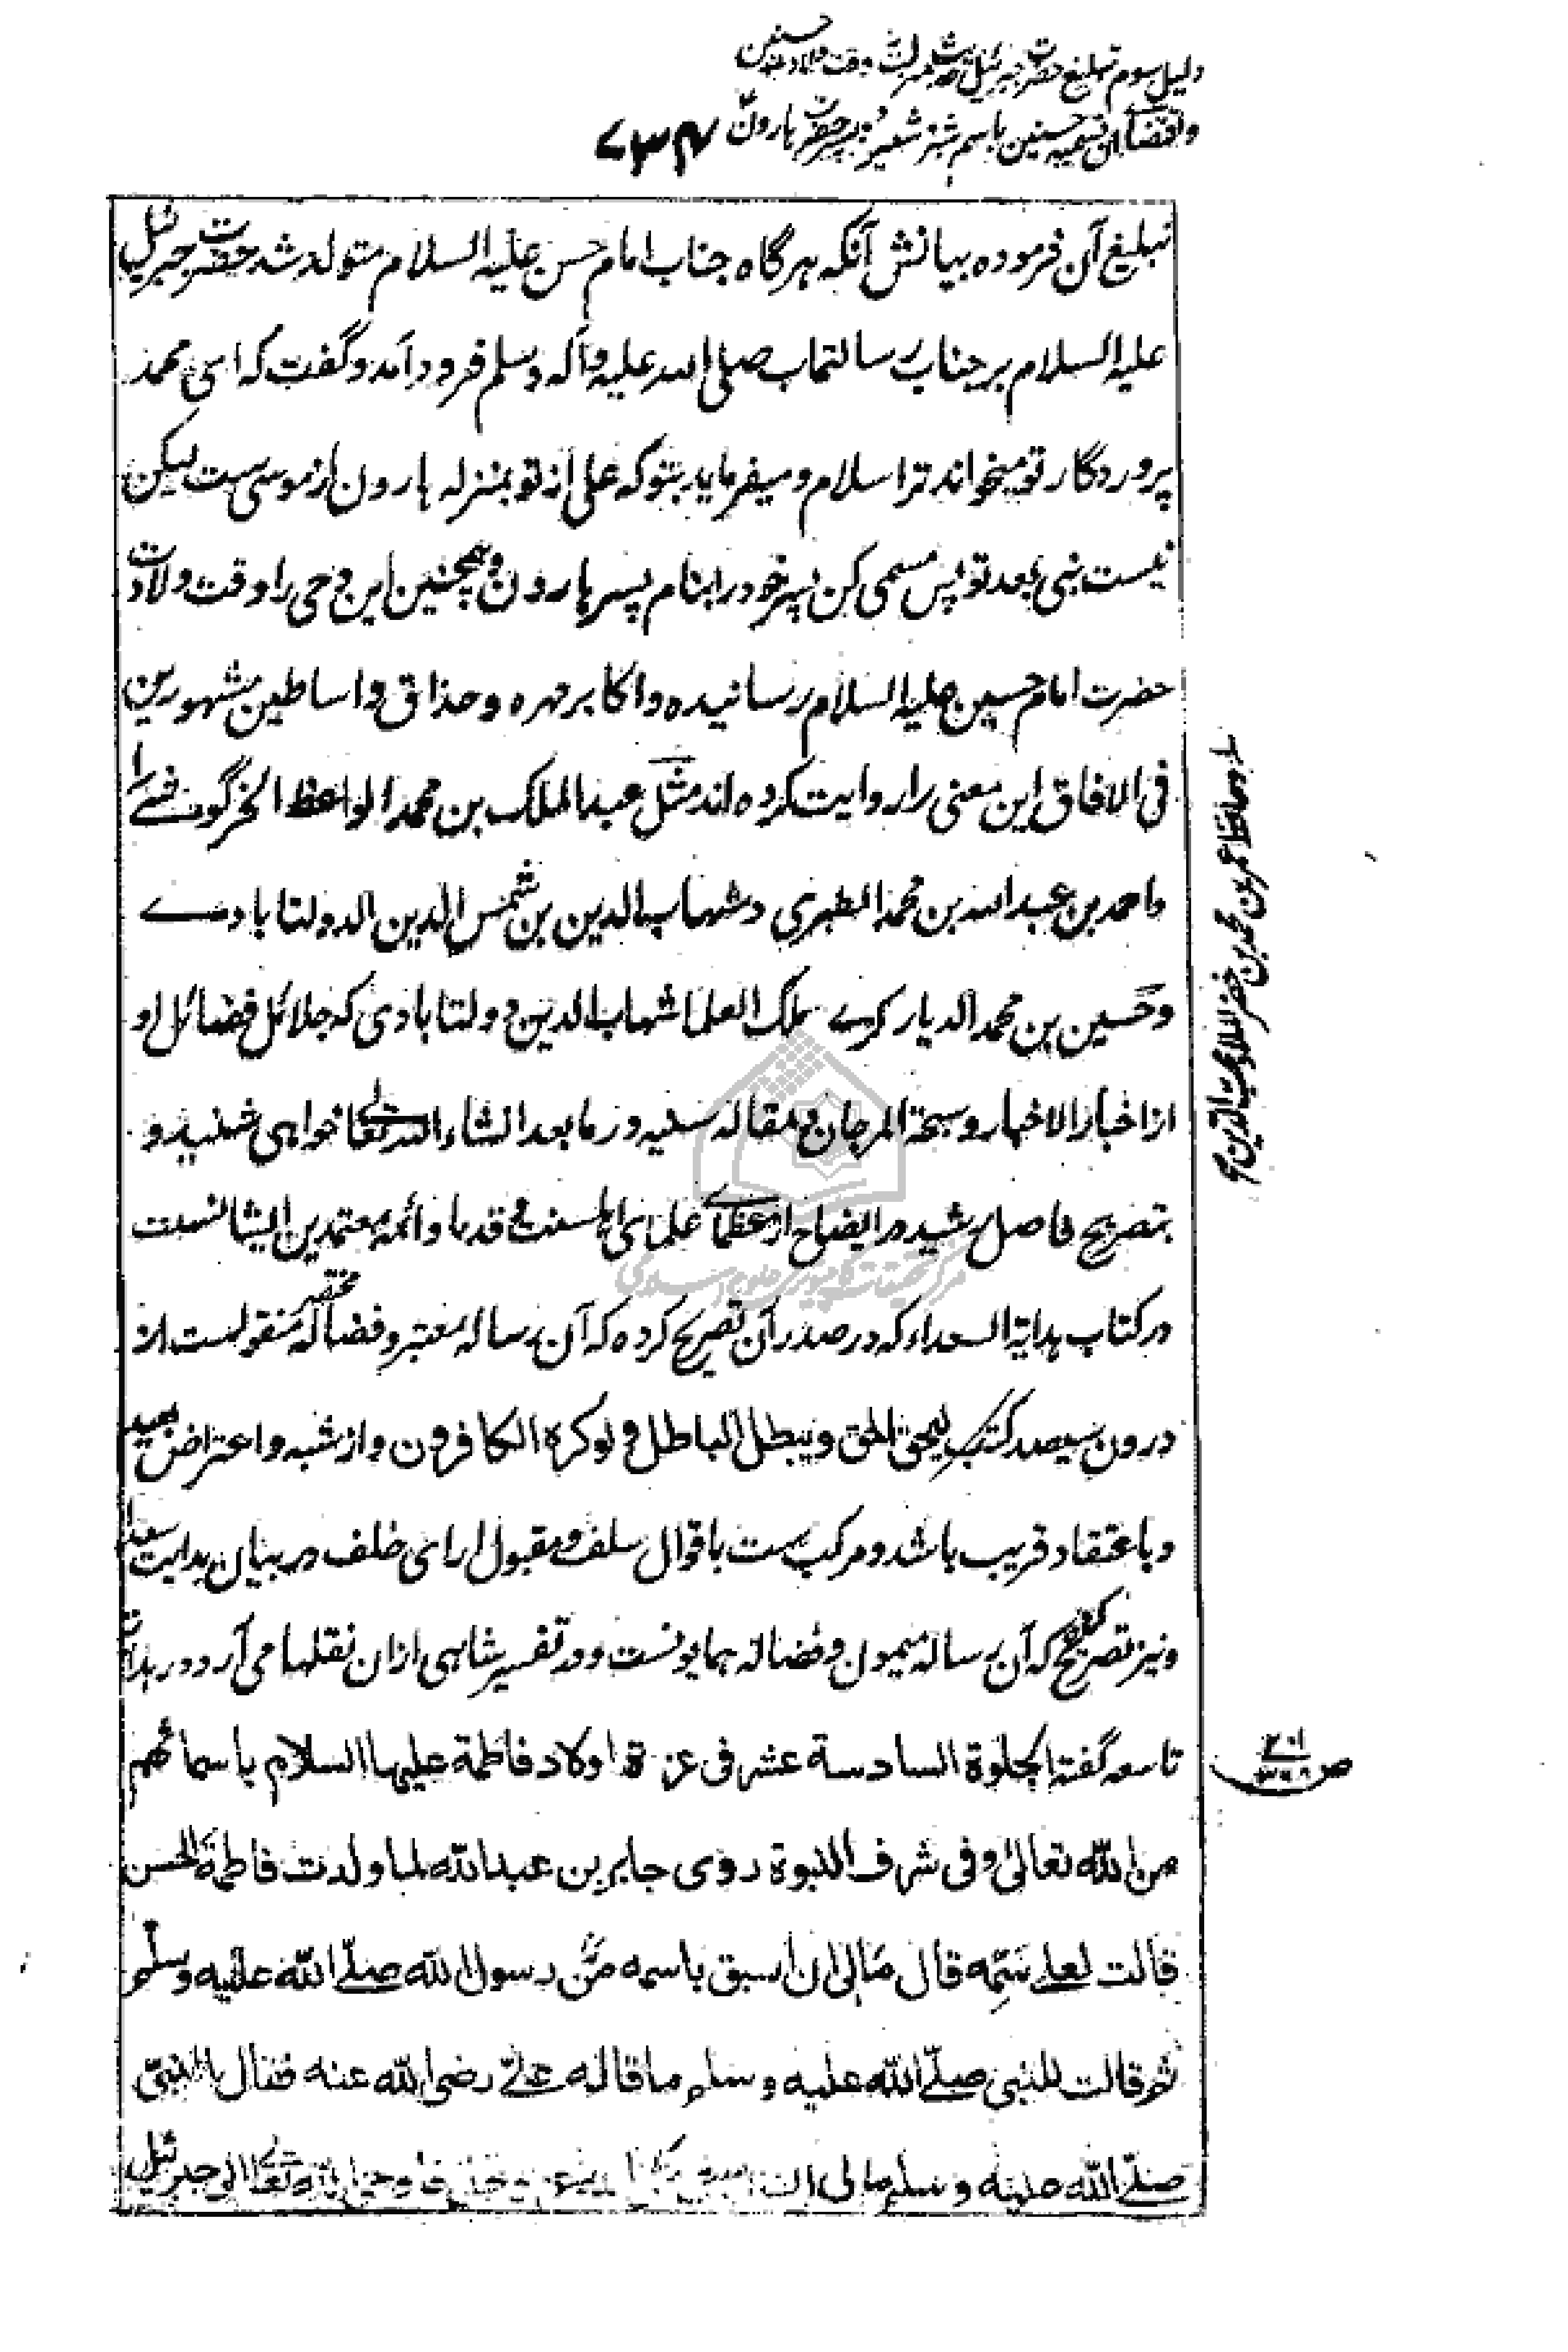 دلیل سوم تبلیغ حضرت جبرئیل حدیث منزلت وقت ولادت حسنین
و تسمیه حسنین باسم شبر و شبیر پسر حضرت هارون ۷۳۴
تبلیغ آن فرموده بیانش آنکه هرگاه جناب امام حسن علیه السلام متولد شد حضرت جبرئیل
علیه السلام بر جناب رسالتمآب صلی الله علیه وآله وسلم فرود آمد و گفت که ای محمد
پروردگار تو میخواند ترا سلام و میفرماید بتو که علی از تو بمنزله هارون از موسی ست لیکن
نیست نبی بعد تو پس مسمی کن پسر خود را بنام پسر هارون و همچنین این وحی را وقت ولادت
حضرت امام حسین علیه السلام رسانیده و اکابر مهره و حذاق و اساطین مشهورین
فی الافاق این معنی را روایت کرده اند مثل عبد الملک بن محمد الواعظ الخرگوشے
واحمد بن عبد الله بن محمد الطبری و شهاب الدین بن شمس الدین الدولتابادے
وحسین بن محمد الدیار بکرے ملک العلما شهاب الدین دولتابادی که جلائل فضائل او
از اخبار الاخیار و سبحة المرجان و مقاله سنیه و رما بعد انشاء الله تعالی خواهی شنید و
بتصریح فاضل رشید در ایضاح از عظمای علمای اهل سنت و قدما و ائمه معتمدین ایشانست
در کتاب هدایة السعداء که در صدر آن تصریح کرده که آن رساله معتبر و فضاله مختصر منقولست از
درون سیصد کتب لیحق الحق ویبطل الباطل ولو کره الکافرون و از شبه و اعتراض بعید
و باعتقاد قریب باشد و مرکب ست باقوال سلف و مقبول ارای خلف در بیان هدایت سعدا
و نیز تصریح کرده که آن رساله میمون و فضاله همایونست و در تفسیر شاهی ازان نقلها می آرد در هدایة
تاسعه گفته الجلوة السادسة عشر فی عزة اولاد فاطمة علیها السلام باسمائهم
من الله تعالی وفی شرف النبوة روی جابر بن عبد الله لما ولدت فاطمة الحسن
قالت لعلی سَمِّه قال مَالی ان اسبق باسمه مِن رسول الله صلّے الله علیه وسلم
ثم قالت للنبی صلّے الله علیه وسلم ما قاله علّے رضی الله عنه فقال النبیّ
صلّے الله علیه وسلم مالی ان فاوحی الله تعالی الی جبرئیل
ص ۲۰۱